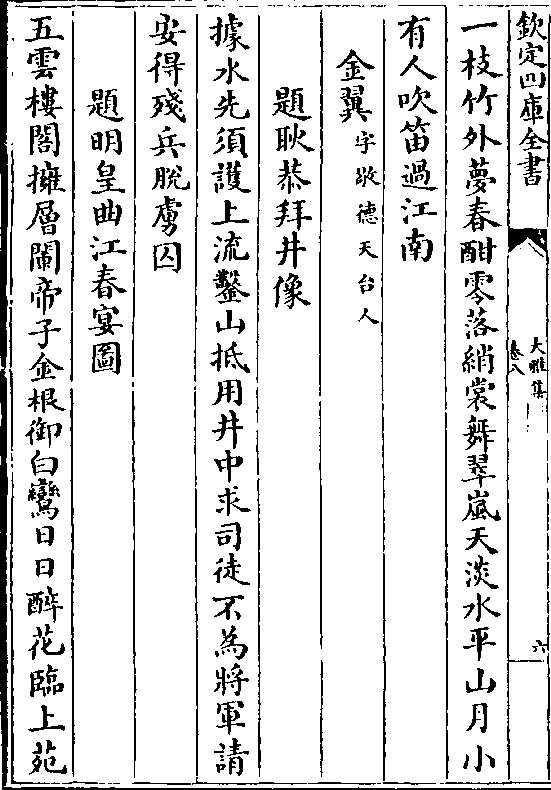 欽定四庫全書
大雅集
卷八
六
一枝竹外夢春酣零落綃裳舞翠嵐天淡水平山月小
有人吹笛過江南
金翼字敬德天台人
題耿恭拜井像
據水先須護上流鑿山抵用井中求司徒不為將軍請
安得殘兵脫虜囚
題明皇曲江春宴圖
五雲樓閣擁層闌帝子金根御白鸞日日醉花臨上苑